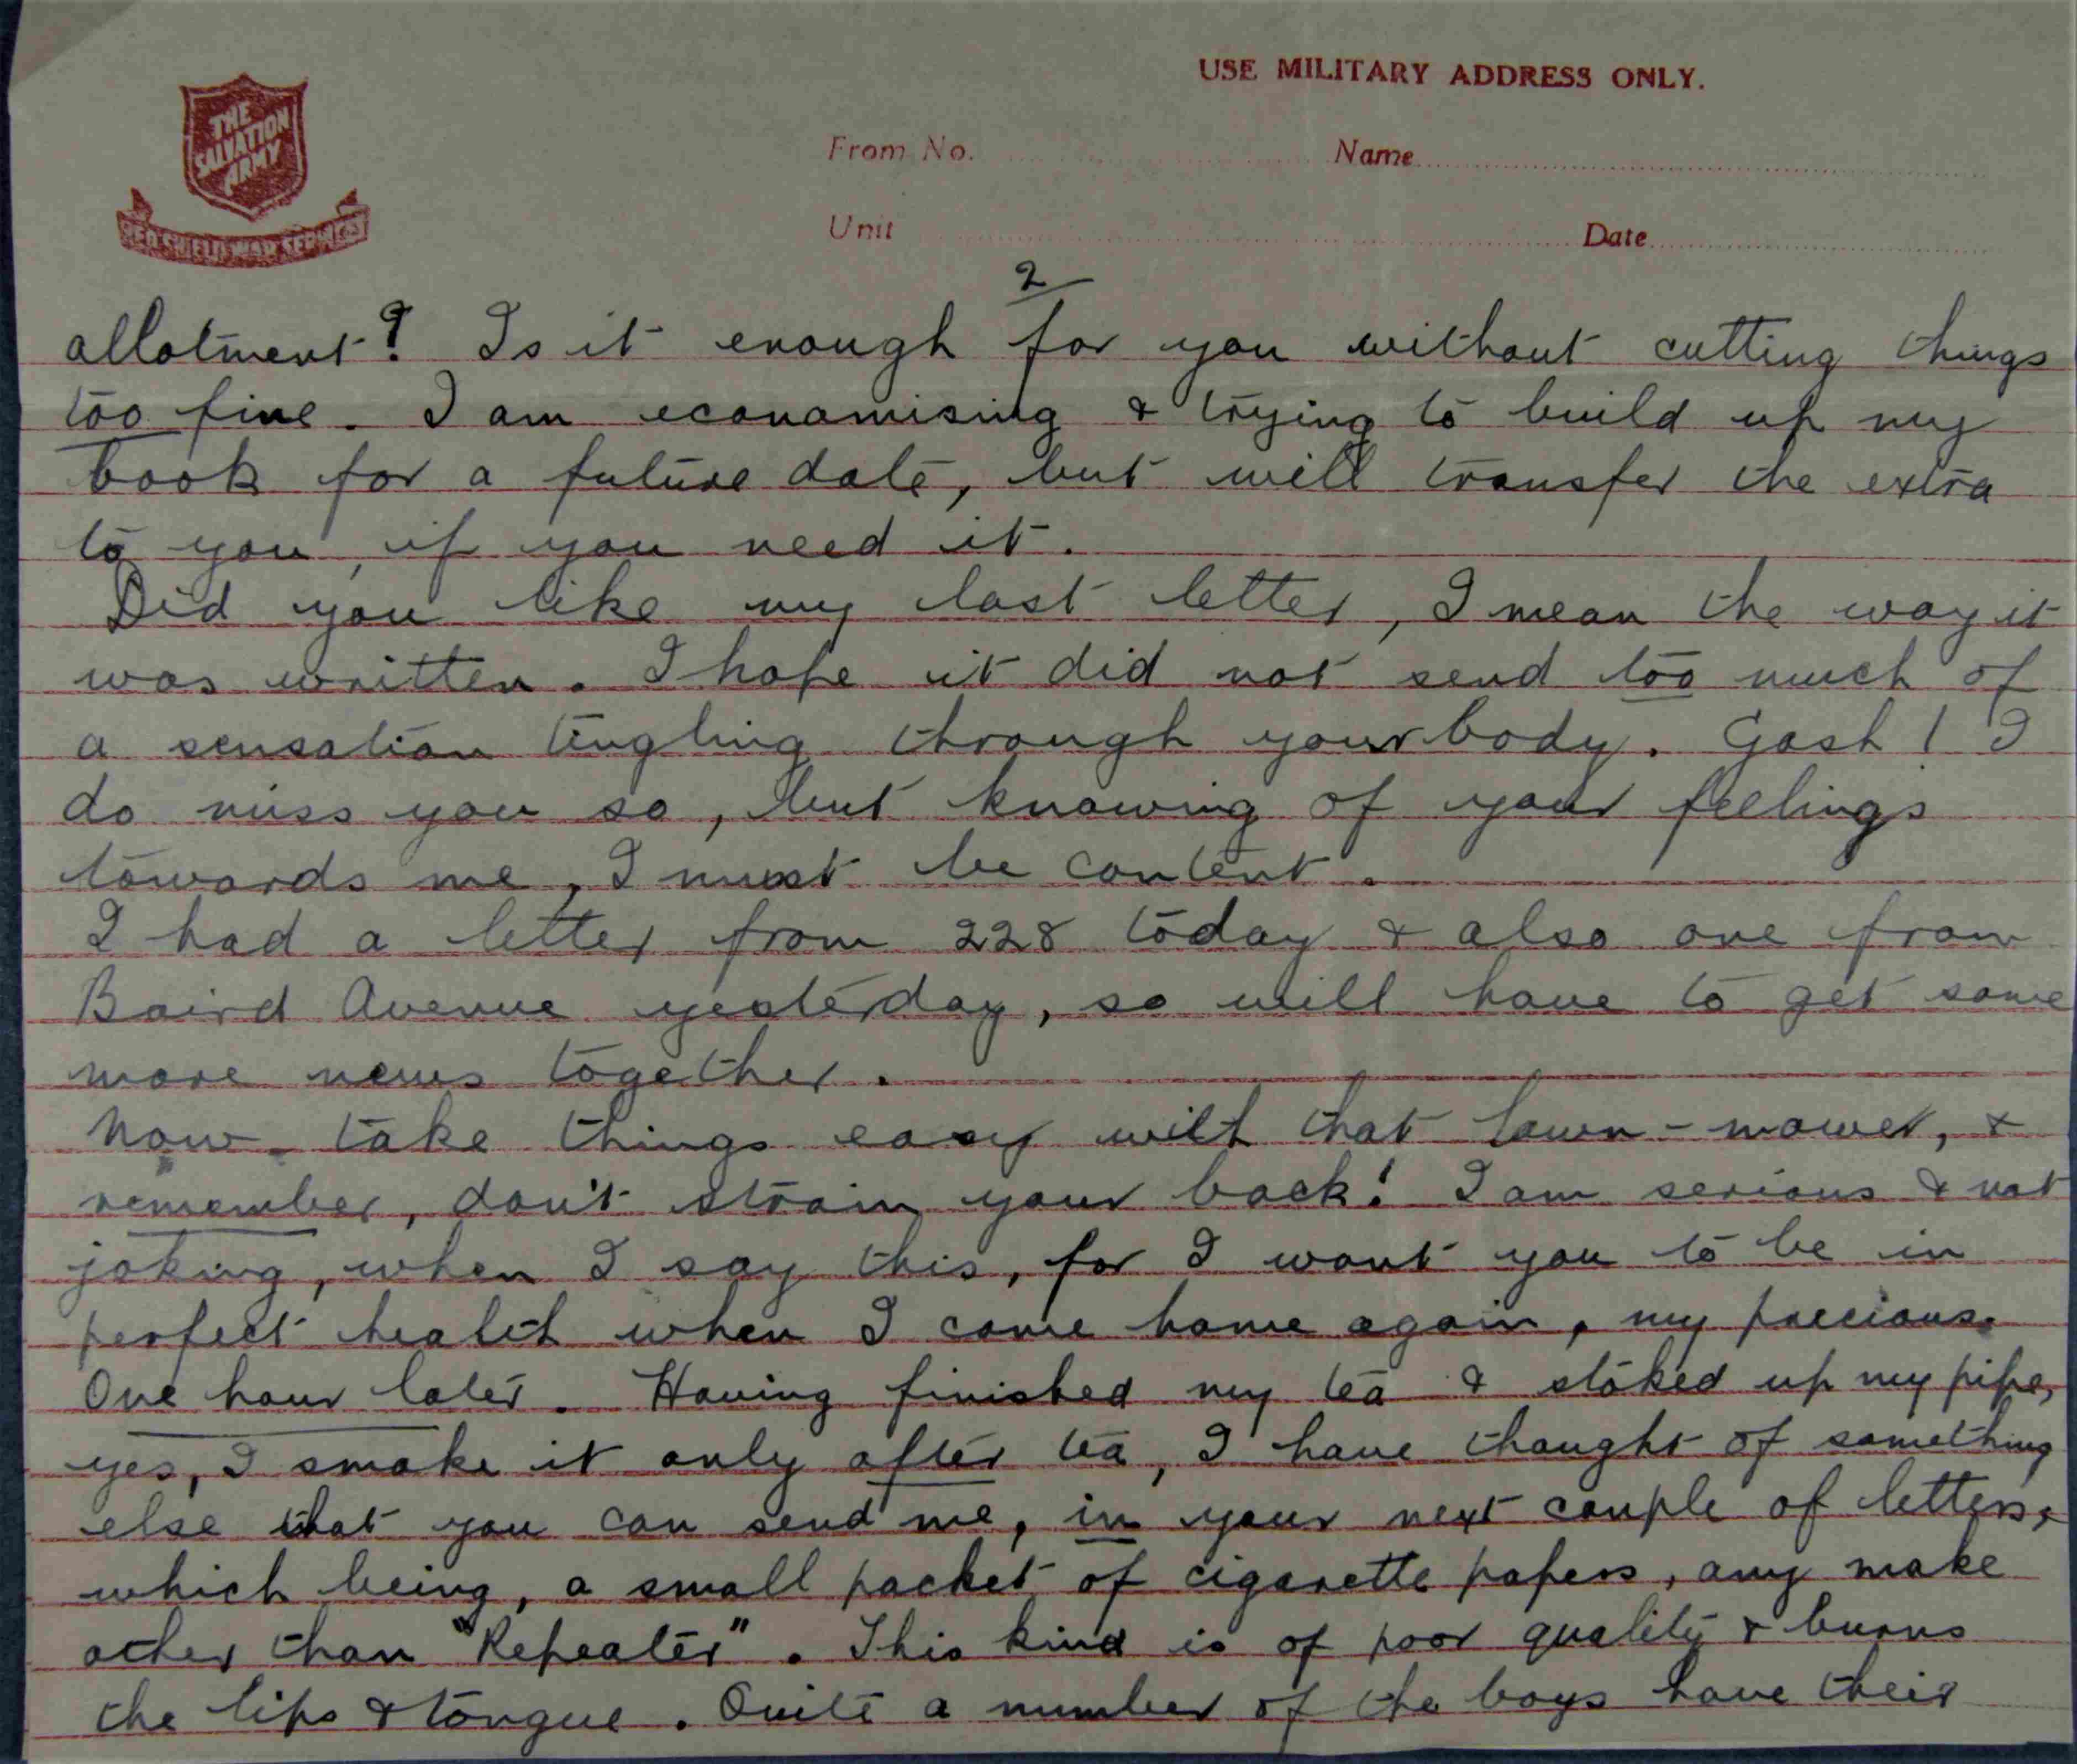 USE MILITARY ADDRESS ONLY.
THE
SALVATION
ARMY
RED SHIELD WAR SERVICES
From No. Name
Unit Date
2
allotment? Is it enough for you without cutting things
too fine. I am economising & trying to build up my
book for a future date, but will transfer the extra
to you, if you need it.
Did you like my last letter, I mean the way it
was written. I hope it did not send too much of
a sensation tingling through your body. Gosh! I
do miss you so, but knowing of your feelings
towards me, I must be content.
I had a letter from 228 today & also one from
Baird Avenue yesterday, so will have to get some
more news together.
Now take things easy with that lawn-mower, &
remember, don't strain your back! I am serious & not
joking, when I say this, for I want you to be in
perfect health when I come home again, my precious.
One hour later. Having finished my tea & stoked up my pipe,
yes, I smoke it only after tea, I have thought of something
else that you can send me, in your next couple of letters,
which being, a small packet of cigarette papers, any make
other than "Repeater". This kind is of poor quality & burns
the lips & tongue. Quite a number of the boys have their